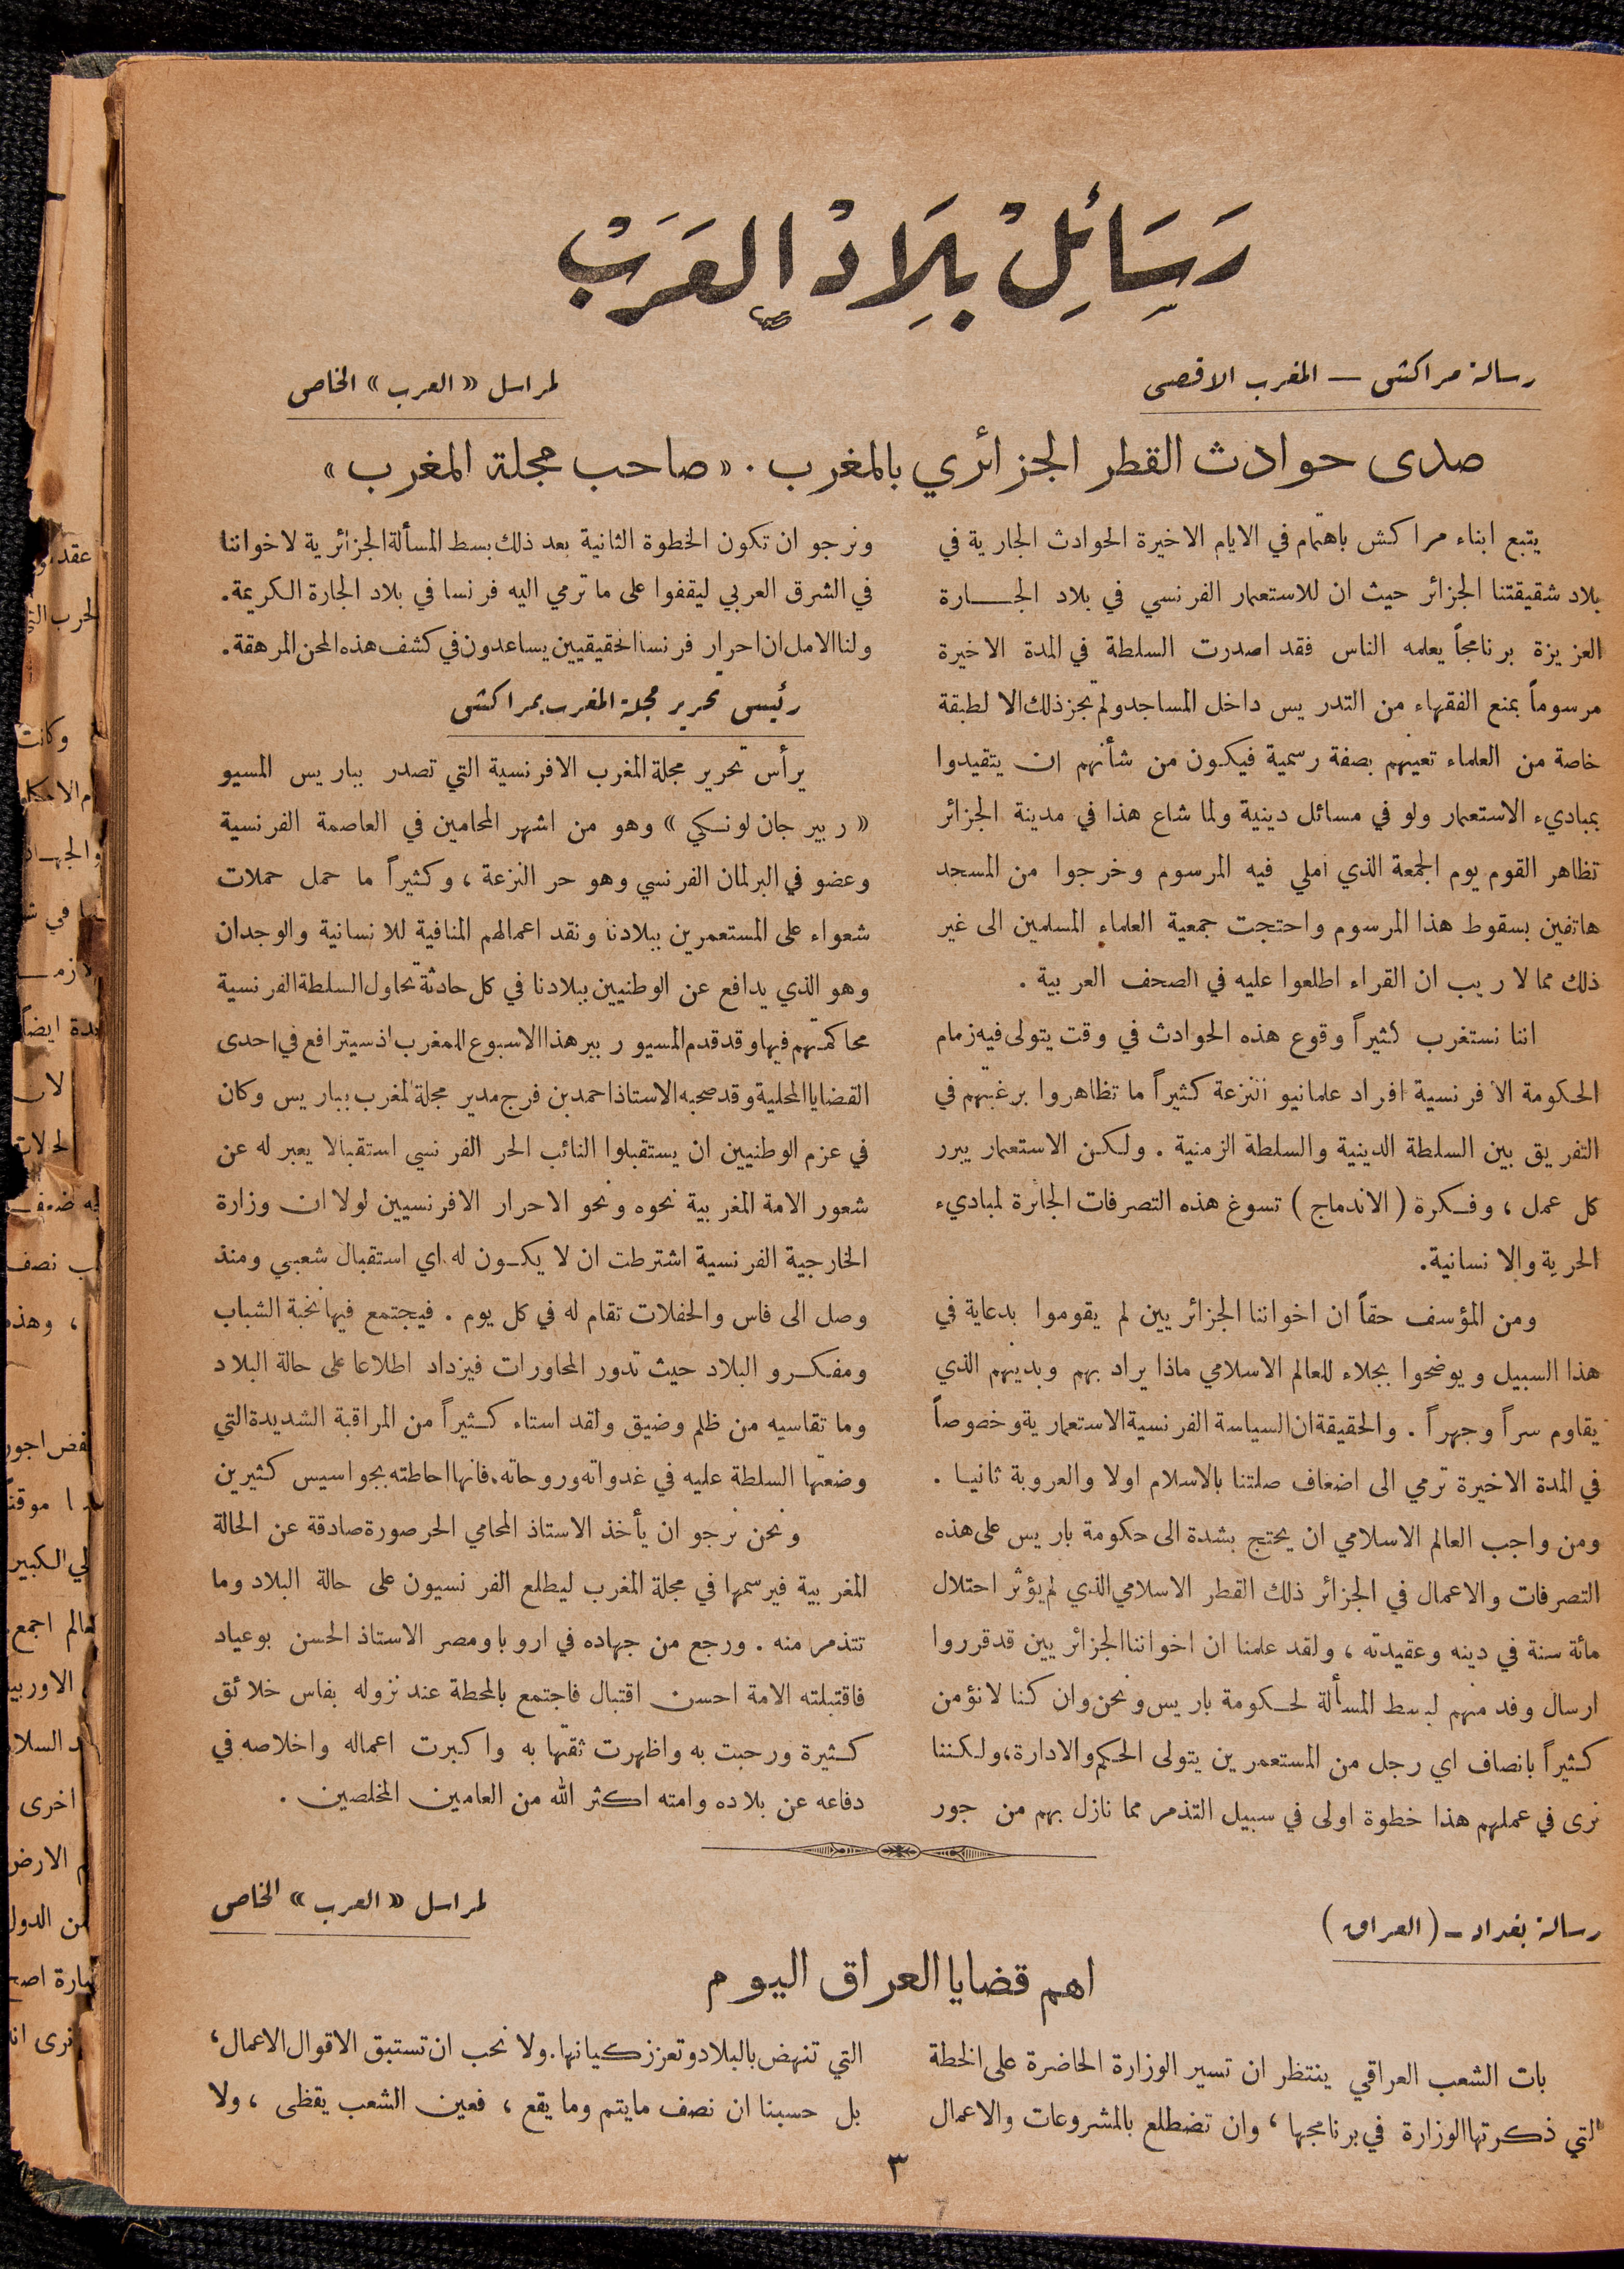 رَسَائِلْ بِلَادْ العَرَبْ
رسالة مراكش — المغرب الاقصى
لمراسل «العرب» الخاص
صدى حوادث القطر الجزائري بالمغرب . «صاحب مجلة المغرب»
يتبع ابناء مراكش باهتمام في الايام الاخيرة الحوادث الجارية في
بلاد شقيقتنا الجزائر حيث ان للاستعمار الفرنسي في بلاد الجــارة
العزيزة برنامجاً يعلمه الناس فقد اصدرت السلطة في المدة الاخيرة
مرسوماً بمنع الفقهاء من التدريس داخل المساجد ولم تجز ذلك الا لطبقة
خاصة من العلماء تعينهم بصفة رسمية فيكون من شأنهم ان يتقيدوا
بمباديء الاستعمار ولو في مسائل دينية ولما شاع هذا في مدينة الجزائر
تظاهر القوم يوم الجمعة الذي املي فيه المرسوم وخرجوا من المسجد
هاتفين بسقوط هذا المرسوم واحتجت جمعية العلماء المسلمين الى غير
ذلك مما لا ريب ان القراء اطلعوا عليه في الصحف العربية .
اننا نستغرب كثيراً وقوع هذه الحوادث في وقت يتولى فيه زمام
الحكومة الافرنسية افراد علمانيو النزعة كثيراً ما تظاهروا برغبتهم في
التفريق بين السلطة الدينية والسلطة الزمنية . ولكن الاستعمار يبرر
كل عمل ، وفكرة ( الاندماج ) تسوغ هذه التصرفات الجائرة لمباديء
الحرية والانسانية.
ومن المؤسف حقاً ان اخواننا الجزائريين لم يقوموا بدعاية في
هذا السبيل ويوضحوا بجلاء للعالم الاسلامي ماذا يراد بهم وبدينهم الذي
يقاوم سراً وجهراً . والحقيقة ان السياسة الفرنسية الاستعمارية وخصوصاً
في المدة الاخيرة ترمي الى اضعاف صلتنا بالاسلام اولا والعروبة ثانيا .
ومن واجب العالم الاسلامي ان يحتج بشدة الى حكومة باريس على هذه
التصرفات والاعمال في الجزائر ذلك القطر الاسلامي الذي لم يؤثر احتلال
مائة سنة في دينه وعقيدته ، ولقد علمنا ان اخواننا الجزائريين قد قرروا
ارسال وفد منهم لبسط المسألة لحكومة باريس ونحن وان كنا لا نؤمن
كثيراً بانصاف اي رجل من المستعمرين يتولى الحكم والادارة، ولكننا
نرى في عملهم هذا خطوة اولى في سبيل التذمر مما نازل بهم من جور
ونرجو ان تكون الخطوة الثانية بعد ذلك بسط المسألة الجزائرية لاخواننا
في الشرق العربي ليقفوا على ما ترمي اليه فرنسا في بلاد الجارة الكريمة.
ولنا الامل ان احرار فرنسا الحقيقيين يساعدون في كشف هذه المحن المرهقة.
رئيس تحرير مجلة المغرب بمراكش
يرأس تحرير مجلة المغرب الافرنسية التي تصدر بباريس المسيو
« ربير جان لونسكي » وهو من اشهر المحامين في العاصمة الفرنسية
وعضو في البرلمان الفرنسي وهو حر النزعة ، وكثيراً ما حمل حملات
شعواء على المستعمرين ببلادنا ونقد اعمالهم المنافية للانسانية والوجدان
وهو الذي يدافع عن الوطنيين ببلادنا في كل حادثة تحاول السلطة الفرنسية
محاكمتهم فيها وقد قدم المسيو ربير هذا الاسبوع المغرب اذ سيترافع في احدى
القضايا المحلية وقد صحبه الاستاذ احمد بن فرج مدير مجلة المغرب بباريس وكان
في عزم الوطنيين ان يستقبلوا النائب الحر الفرنسي استقبالا يعبر له عن
شعور الامة المغربية نحوه ونحو الاحرار الافرنسيين لولا ان وزارة
الخارجية الفرنسية اشترطت ان لا يكون له اي استقبال شعبي ومنذ
وصل الى فاس والحفلات تقام له في كل يوم . فيجتمع فيها نخبة الشباب
ومفكرو البلاد حيث تدور المحاورات فيزداد اطلاعا على حالة البلاد
وما تقاسيه من ظلم وضيق ولقد استاء كثيراً من المراقبة الشديدة التي
وضعتها السلطة عليه في غدواته وروحاته. فانها احاطته بجواسيس كثيرين
ونحن نرجو ان يأخذ الاستاذ المحامي الحر صورة صادقة عن الحالة
المغربية فيرسمها في مجلة المغرب ليطلع الفرنسيون على حالة البلاد وما
تتذمر منه . ورجع من جهاده في اروبا ومصر الاستاذ الحسن بوعياد
فاقتبلته الامة احسن اقتبال فاجتمع بالمحطة عند نزوله بفاس خلائق
كثيرة ورحبت به واظهرت ثقتها به واكبرت اعماله واخلاصه في
دفاعه عن بلاده وامته اكثر الله من العامين المخلصين .
رسالة بغداد - (العراق)
لمراسل «العرب» الخاص
اهم قضايا العراق اليوم
بات الشعب العراقي ينتظر ان تسير الوزارة الحاضرة على الخطة
التي ذكرتها الوزارة في برنامجها ، وان تضطلع بالمشروعات والاعمال
التي تنهض بالبلاد وتعزز كيانها. ولا نحب ان تستبق الاقوال الاعمال ،
بل حسبنا ان نصف ما يتم وما يقع ، فعين الشعب يقظى ، ولا
٣